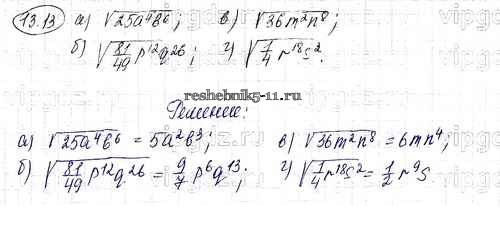 13.13 а) √25a⁴b⁶; в) √36m²n⁸;
б) √81/49 p¹²q²⁶; г) √1/4 r¹⁸s².
reshebnik5-11.ru
Решение:
а) √25a⁴b⁶ = 5a²b³; в) √36m²n⁸ = 6mn⁴;
б) √81/49 p¹²q²⁶ = 9/7 p⁶q¹³; г) √1/4 r¹⁸s² = 1/2 r⁹s.